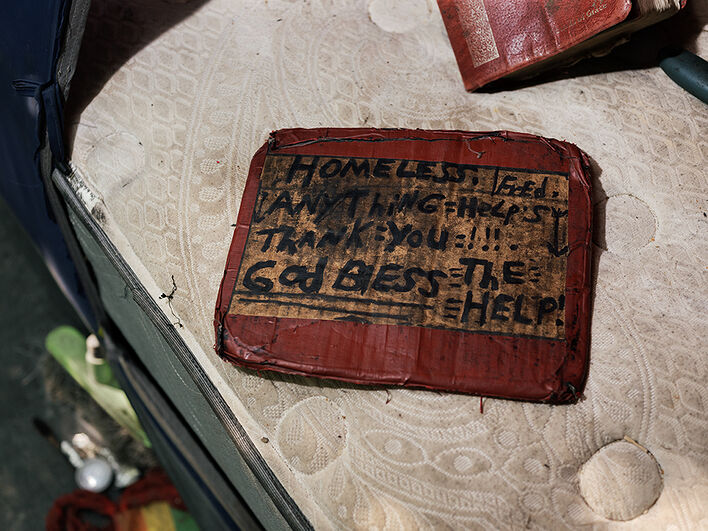 HOMELESS:
FrEd.
ANYThiNG=HElp:S
THANK=YOU=!!!.
God BlESS=ThE=
=HELP!